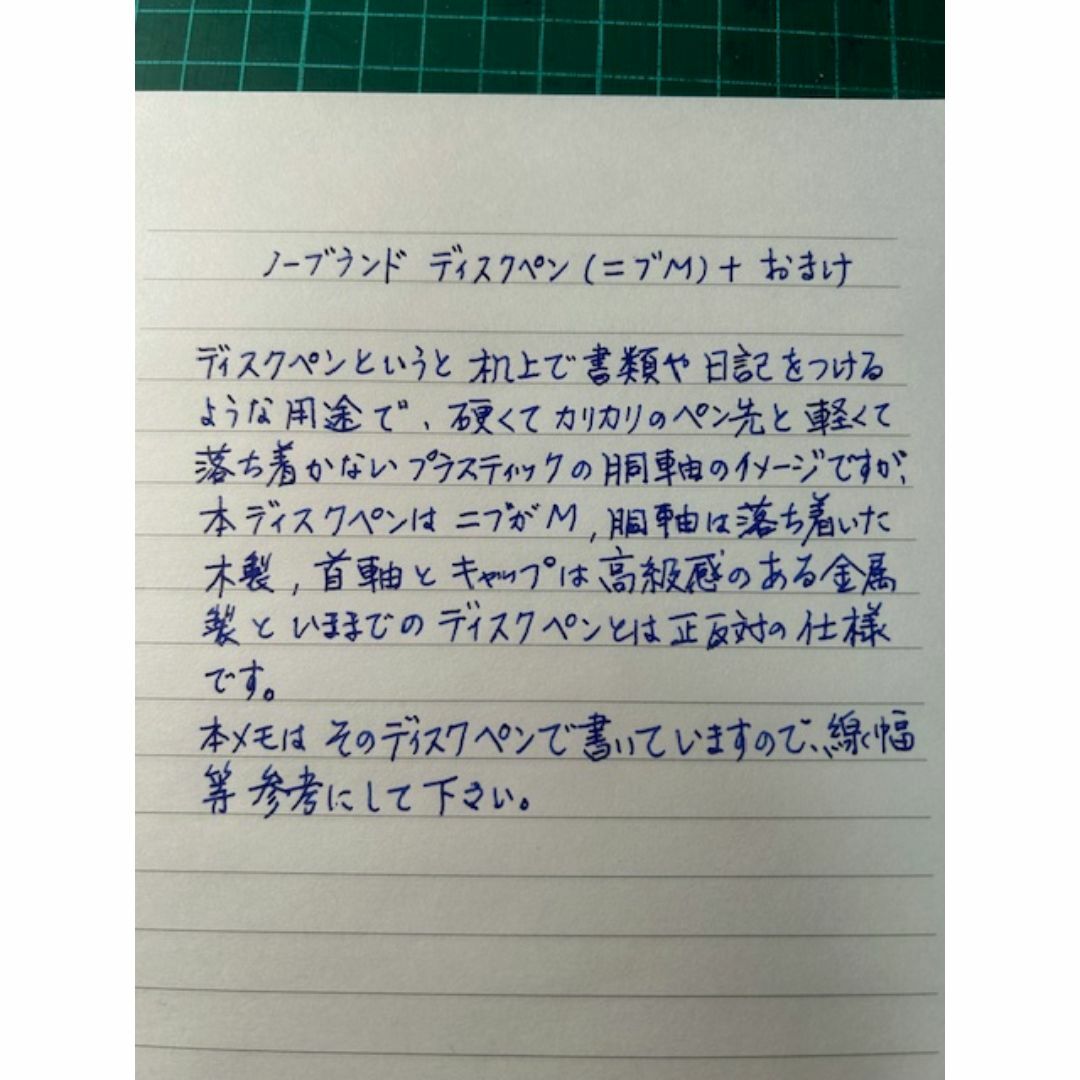 ノーブランド ディスクペン(ニブM)+ おまけ
ディスクペンというと 机上で書類や日記をつける
ような用途で、硬くてカリカリのペン先と軽くて
落ち着かないプラスティックの胴軸のイメージですが、
本ディスクペンは ニブがM, 胴軸は落ち着いた
木製, 首軸とキャップは高級感のある金属
製といままでのディスクペンとは正反対の仕様
です。
本メモは そのディスクペンで書いていますので、線幅
等参考にして下さい。